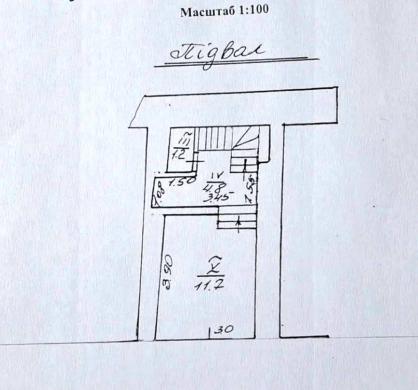 Масштаб 1:100
Підвал
III
1.2
1.50
IV
4.8
3.45
1.08
2.58
3.90
V
11.2
30